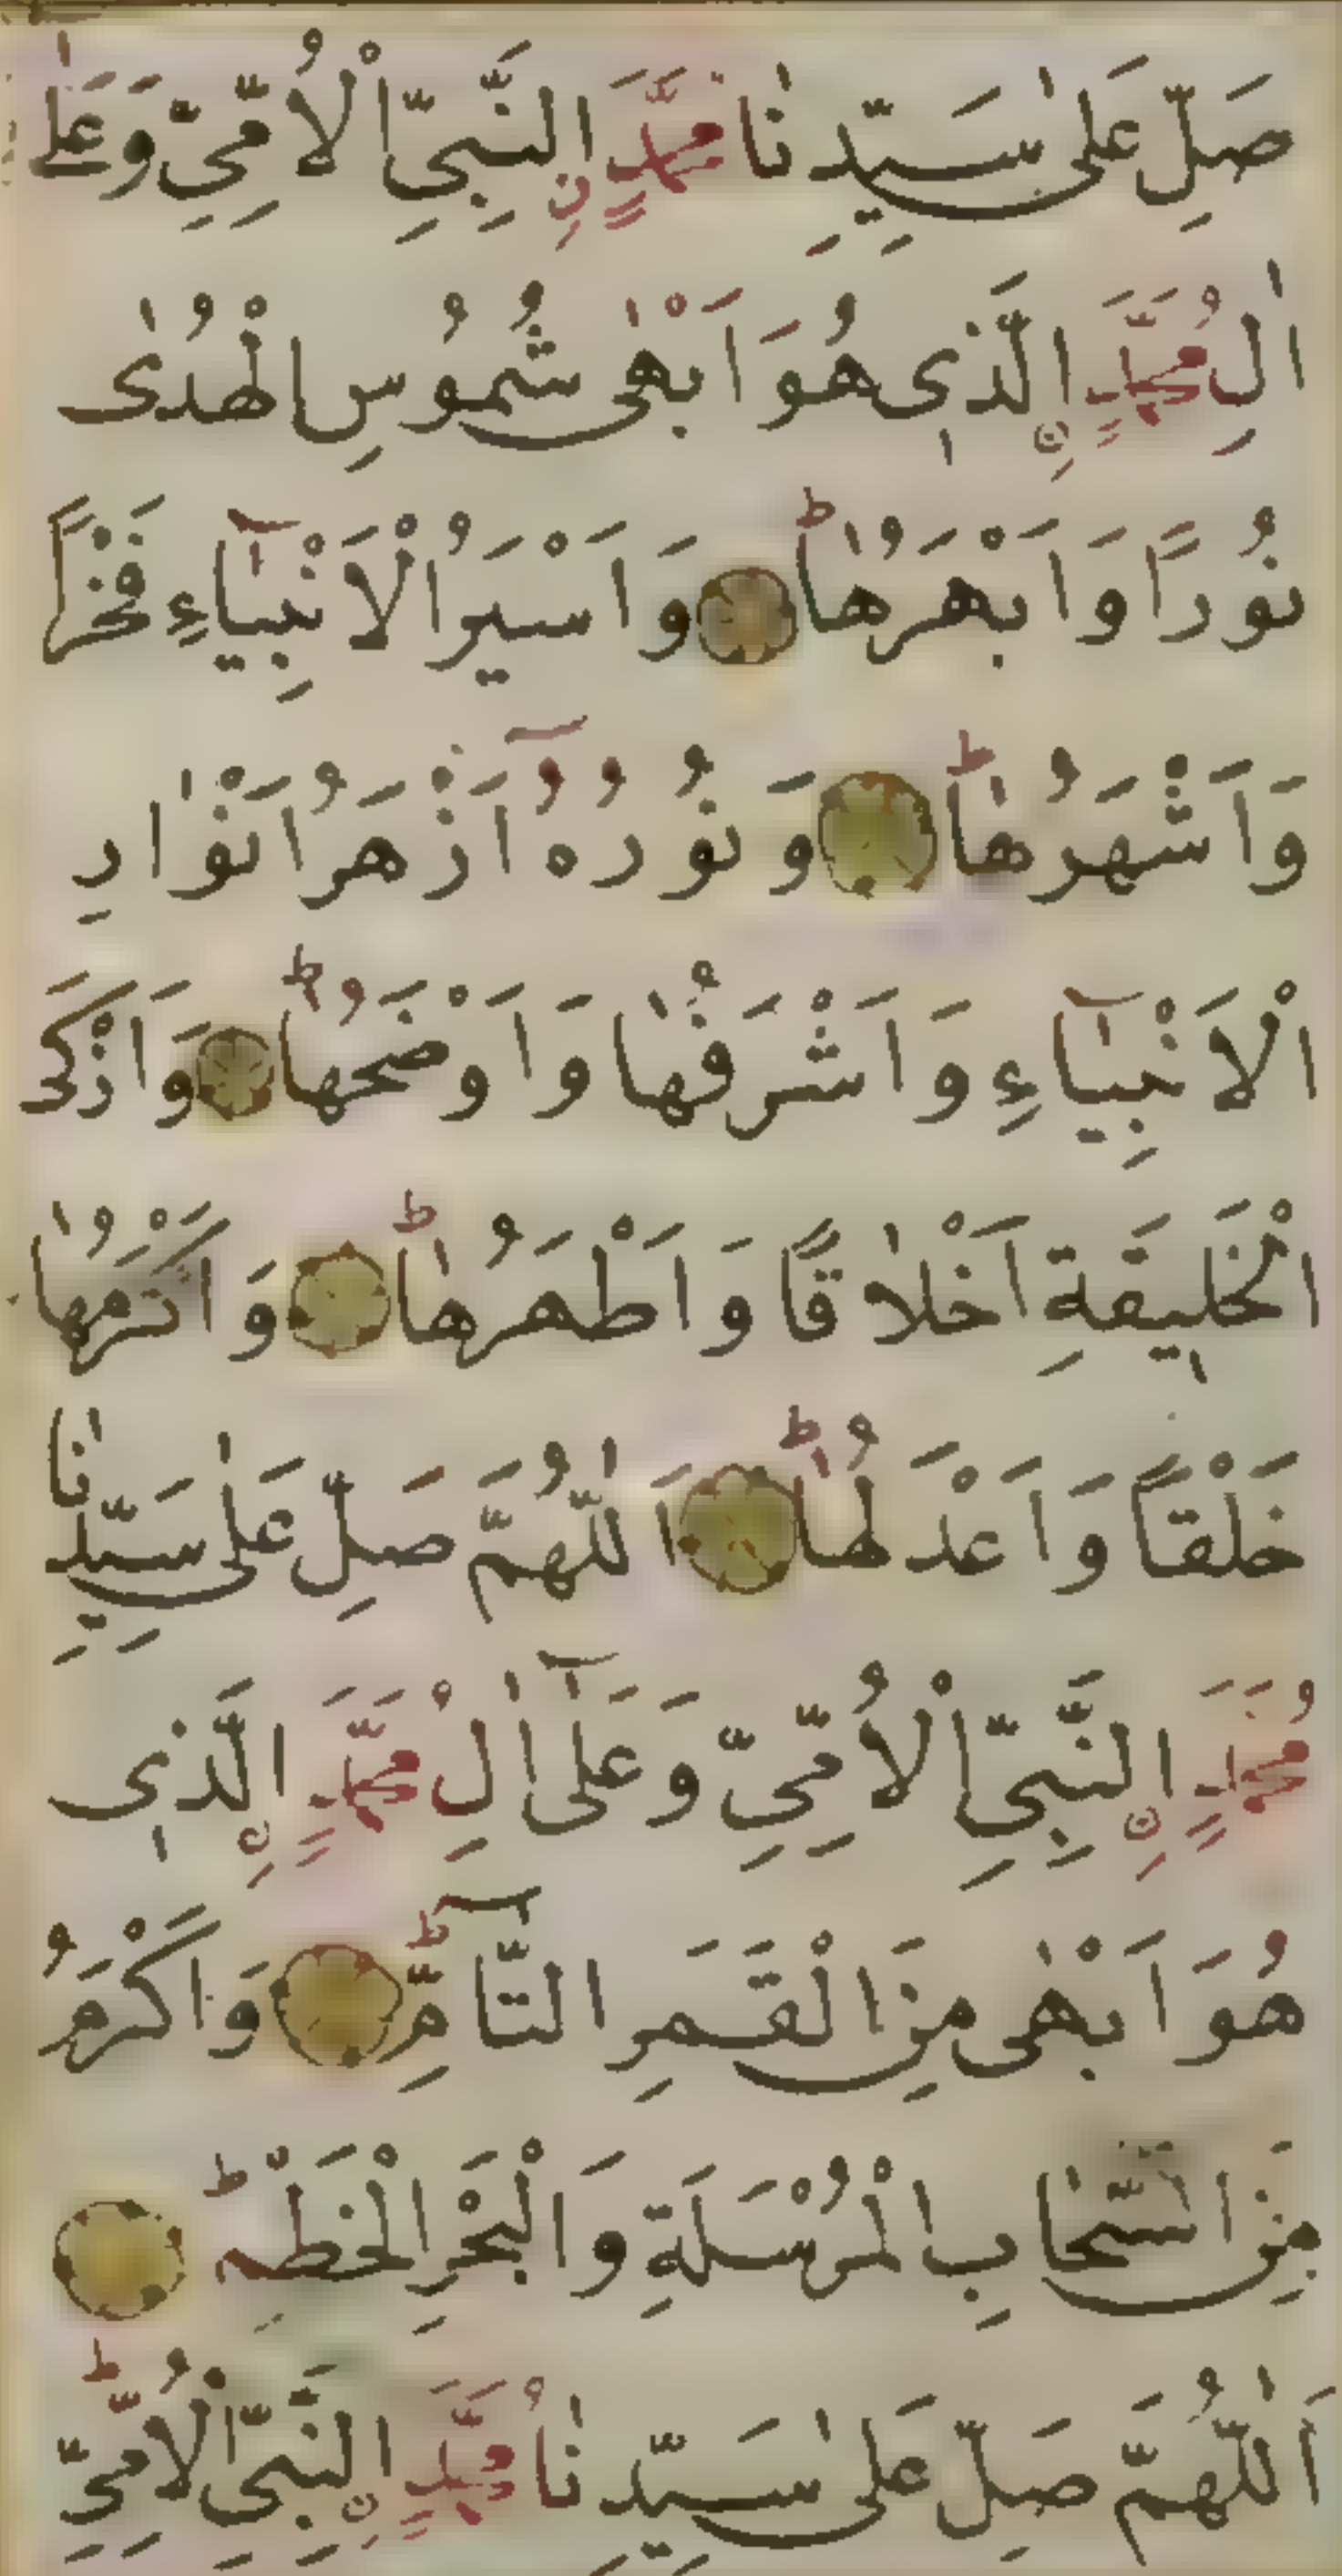 صَلِّ عَلٰى سَيِّدِنَا مُحَمَّدٍ نِ النَّبِيِّ الْاُمِّيِّ وَعَلٰٓى
اٰلِ مُحَمَّدٍ نِ الَّذِي هُوَ اَبْهٰى شُمُوْسِ الْهُدٰى
نُوْرًا وَاَبْهَرُهَا ؕ وَاَسْيَرُ الْاَنْبِيَآءِ فَخْرًا
وَاَشْهَرُهَا ؕ وَنُوْرُهُ اَزْهَرُ اَنْوَارِ
الْاَنْبِيَآءِ وَاَشْرَفُهَا وَاَوْضَحُهَا ؕ وَاَزْكَى
الْخَلِيْقَةِ اَخْلَاقًا وَاَطْهَرُهَا ؕ وَاَكْرَمُهَا
خَلْقًا وَاَعْدَلُهَا ؕ اَللّٰهُمَّ صَلِّ عَلٰى سَيِّدِنَا
مُحَمَّدٍ نِ النَّبِيِّ الْاُمِّيِّ وَعَلٰٓى اٰلِ مُحَمَّدٍ نِ الَّذِي
هُوَ اَبْهٰى مِنَ الْقَمَرِ التَّآمِّ ؕ وَاَكْرَمُ
مِنَ السَّحَابِ الْمُرْسَلَةِ وَالْبَحْرِ الْخَطْمِ ؕ
اَللّٰهُمَّ صَلِّ عَلٰى سَيِّدِنَا مُحَمَّدٍ نِ النَّبِيِّ الْاُمِّيِّ ؕ